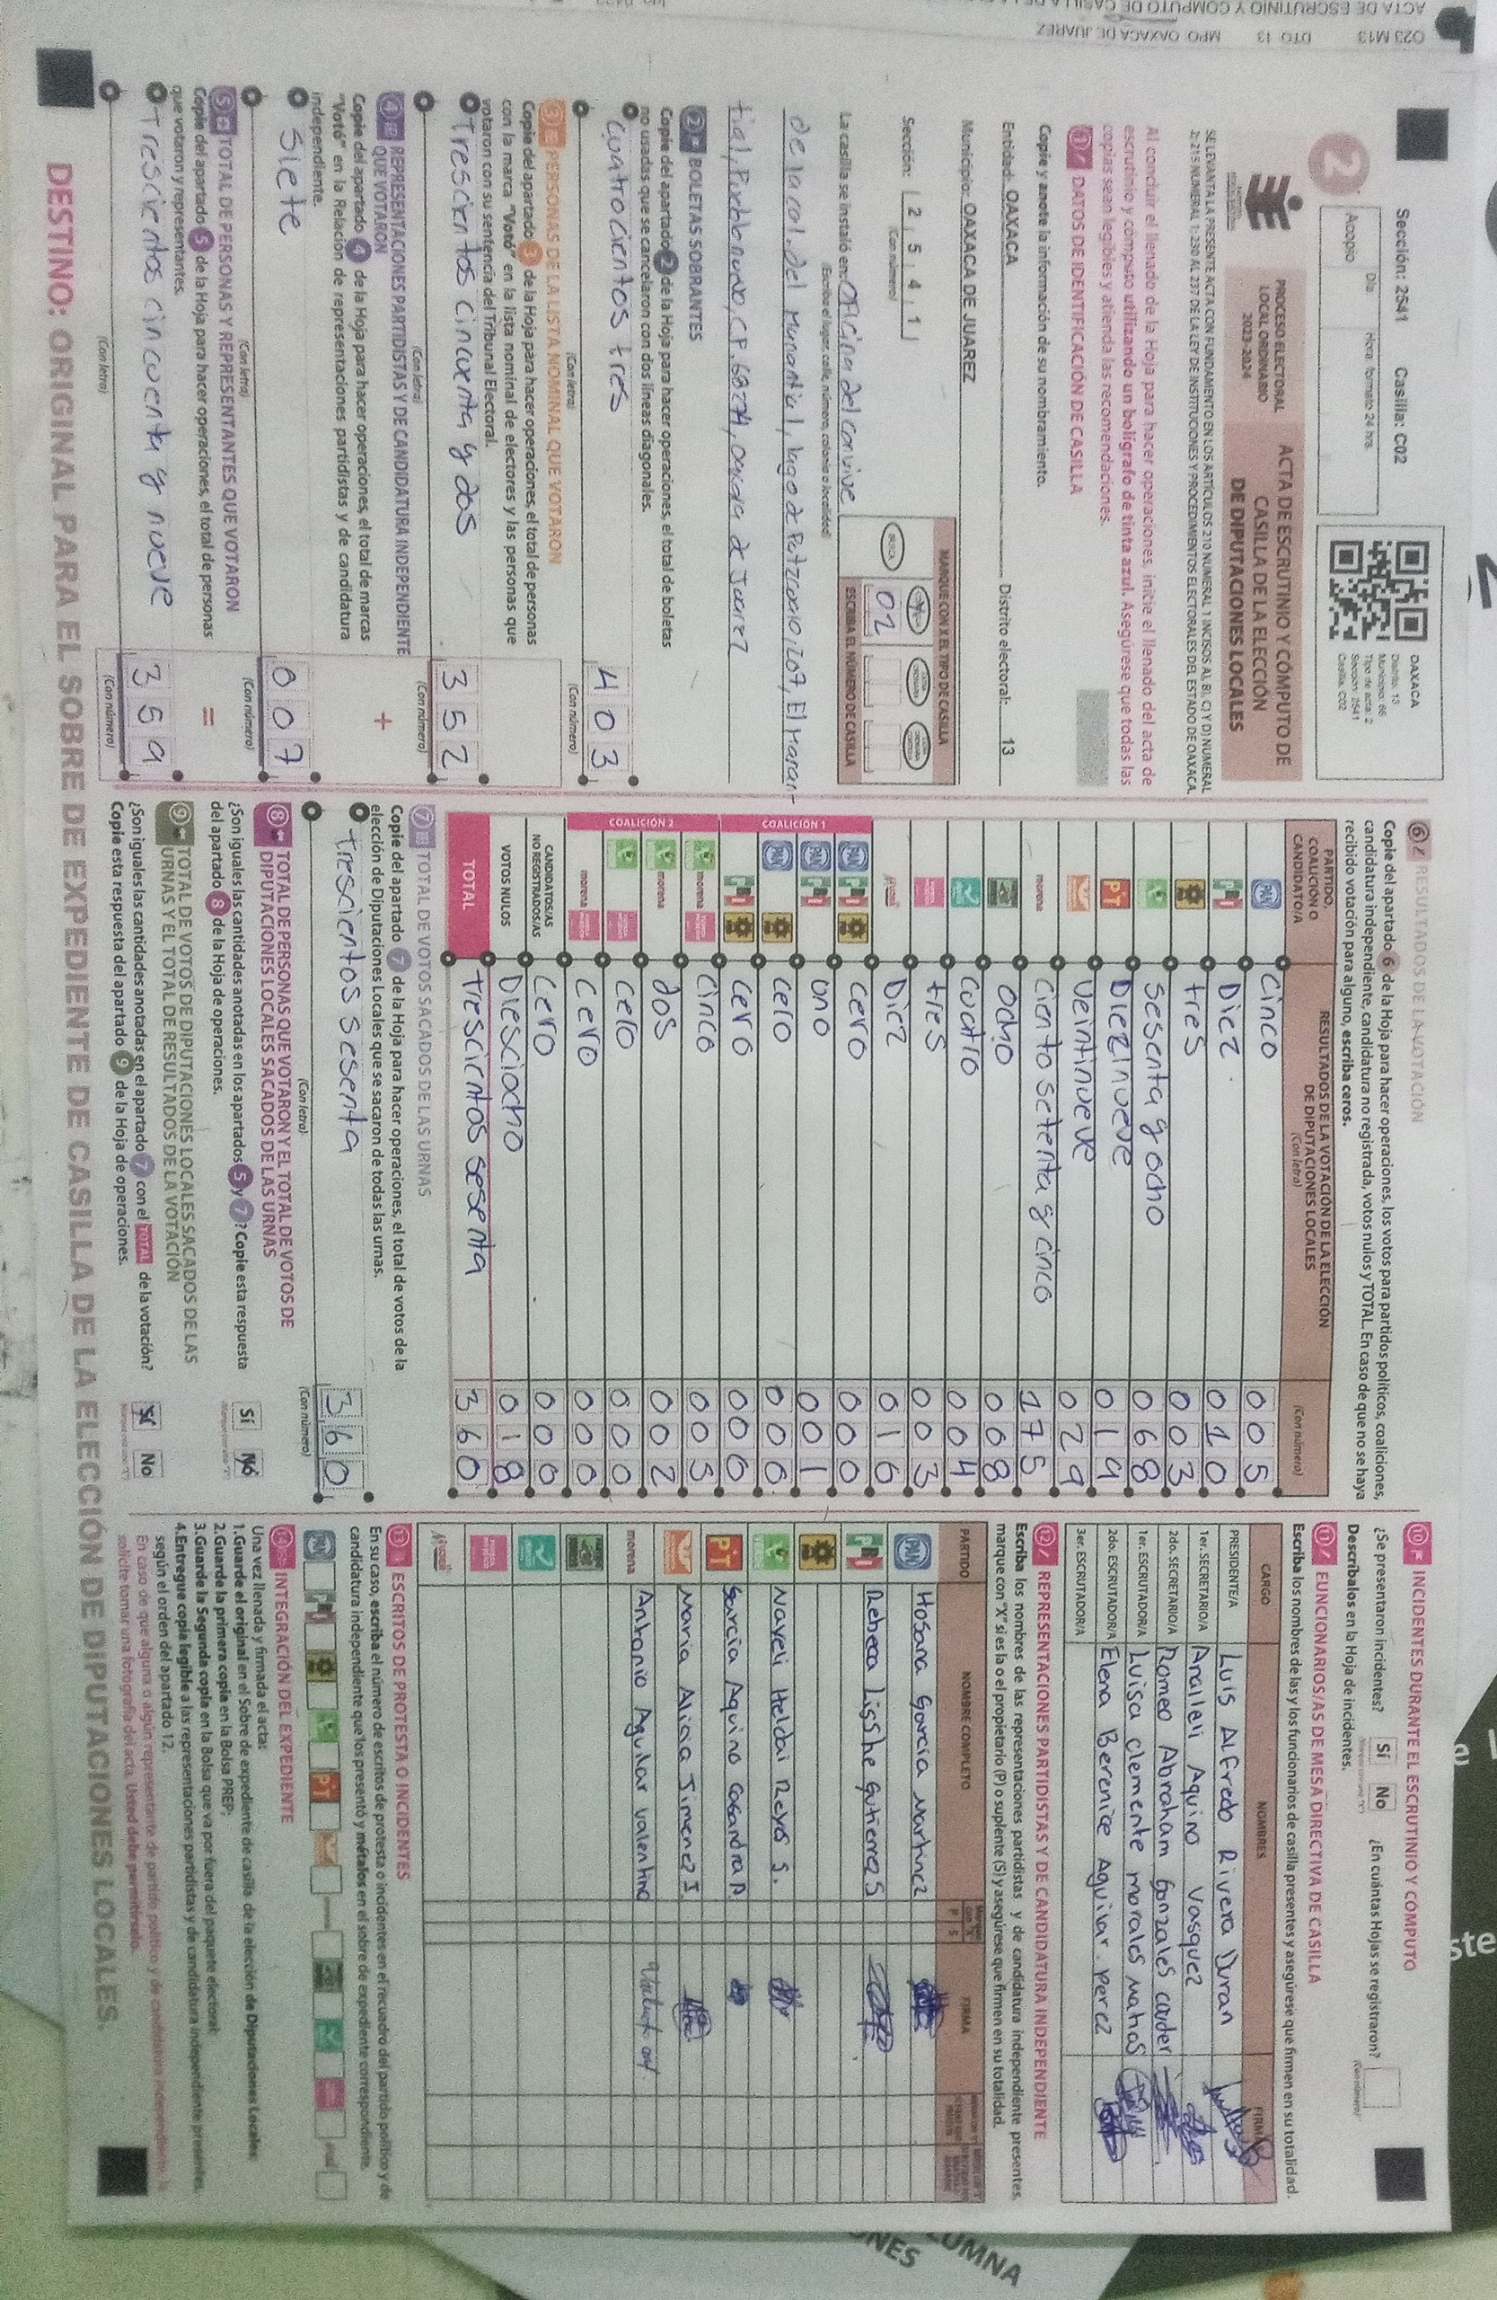 Sección: 2541 Casilla: C02
Día Hora: formato 24 hrs.
Acopio
2
OAXACA
Distrito: 13
Municipio: 66
Tipo de acta: 2
Sección: 2541
Casilla: C02
PROCESO ELECTORAL
LOCAL ORDINARIO
2023-2024
ACTA DE ESCRUTINIO Y CÓMPUTO DE
CASILLA DE LA ELECCIÓN
DE DIPUTACIONES LOCALES
SE LEVANTA LA PRESENTE ACTA CON FUNDAMENTO EN LOS ARTÍCULOS 210 NUMERAL 1 INCISOS A), B), C) Y D) NUMERAL
2; 215 NUMERAL 1; 230 AL 237 DE LA LEY DE INSTITUCIONES Y PROCEDIMIENTOS ELECTORALES DEL ESTADO DE OAXACA.
Al concluir el llenado de la Hoja para hacer operaciones, inicie el llenado del acta de
escrutinio y cómputo utilizando un bolígrafo de tinta azul. Asegúrese que todas las
copias sean legibles y atienda las recomendaciones.
1 DATOS DE IDENTIFICACIÓN DE CASILLA
Copie y anote la información de su nombramiento.
Entidad: OAXACA Distrito electoral: 13
Municipio: OAXACA DE JUAREZ
Sección: 2 5 4 1
(Con número)
MARQUE CON X EL TIPO DE CASILLA
BÁSICA
02
ESCRIBA EL NÚMERO DE CASILLA
La casilla se instaló en: Oficina del convive
(Escriba el lugar, calle, número, colonia o localidad)
de la col. del Manantial, lago de Patzcuaro, 107, El Manan-
tial, Pueblo nuevo, C.P. 68274, Oaxaca de Juarez
2 BOLETAS SOBRANTES
Copie del apartado 2 de la Hoja para hacer operaciones, el total de boletas
no usadas que se cancelaron con dos líneas diagonales.
Cuatrocientos tres 4 0 3
(Con letra) (Con número)
3 PERSONAS DE LA LISTA NOMINAL QUE VOTARON
Copie del apartado 3 de la Hoja para hacer operaciones, el total de personas
con la marca "Votó" en la lista nominal de electores y las personas que
votaron con su sentencia del Tribunal Electoral.
Trescientos cincuenta y dos 3 5 2
(Con letra) (Con número)
4 REPRESENTACIONES PARTIDISTAS Y DE CANDIDATURA INDEPENDIENTE
QUE VOTARON +
Copie del apartado 4 de la Hoja para hacer operaciones, el total de marcas
"Votó" en la Relación de representaciones partidistas y de candidatura
independiente.
Siete 0 0 7
(Con letra) (Con número)
5 TOTAL DE PERSONAS Y REPRESENTANTES QUE VOTARON
Copie del apartado 5 de la Hoja para hacer operaciones, el total de personas
que votaron y representantes. =
Trescientos cincuenta y nueve 3 5 9
(Con letra) (Con número)
6 RESULTADOS DE LA VOTACIÓN
Copie del apartado 6 de la Hoja para hacer operaciones, los votos para partidos políticos, coaliciones,
candidatura independiente, candidatura no registrada, votos nulos y TOTAL. En caso de que no se haya
recibido votación para alguno, escriba ceros.
PARTIDO,
COALICIÓN O
CANDIDATO/A
RESULTADOS DE LA VOTACIÓN DE LA ELECCIÓN
DE DIPUTACIONES LOCALES
(Con letra) (Con número)
PAN Cinco 0 0 5
PRI Diez 0 1 0
tres 0 0 3
Sesenta y ocho 0 6 8
PT Diezinueve 0 1 9
Veintinueve 0 2 9
morena Ciento setenta y cinco 1 7 5
Ocho 0 0 8
Cuatro 0 0 4
tres 0 0 3
Diez 0 1 0
COALICIÓN 1
PAN PRI cero 0 0 0
PAN PRI uno 0 0 1
PAN cero 0 0 0
PRI cero 0 0 0
COALICIÓN 2
morena Cinco 0 0 5
morena dos 0 0 2
cero 0 0 0
morena cero 0 0 0
CANDIDATOS/AS
NO REGISTRADOS/AS cero 0 0 0
VOTOS NULOS Diesciocho 0 1 8
TOTAL trescientos sesenta 3 6 0
7 TOTAL DE VOTOS SACADOS DE LAS URNAS
Copie del apartado 7 de la Hoja para hacer operaciones, el total de votos de la
elección de Diputaciones Locales que se sacaron de todas las urnas.
trescientos sesenta 3 6 0
(Con letra) (Con número)
8 TOTAL DE PERSONAS QUE VOTARON Y EL TOTAL DE VOTOS DE
DIPUTACIONES LOCALES SACADOS DE LAS URNAS
¿Son iguales las cantidades anotadas en los apartados 5 y 7? Copie esta respuesta
del apartado 8 de la Hoja de operaciones. Sí No
9 TOTAL DE VOTOS DE DIPUTACIONES LOCALES SACADOS DE LAS
URNAS Y EL TOTAL DE RESULTADOS DE LA VOTACIÓN
¿Son iguales las cantidades anotadas en el apartado 7 con el TOTAL de la votación?
Copie esta respuesta del apartado 9 de la Hoja de operaciones. Sí No
10 INCIDENTES DURANTE EL ESCRUTINIO Y CÓMPUTO
¿Se presentaron incidentes? Sí No ¿En cuántas Hojas se registraron?
Descríbalos en la Hoja de incidentes.
11 FUNCIONARIOS/AS DE MESA DIRECTIVA DE CASILLA
Escriba los nombres de las y los funcionarios de casilla presentes y asegúrese que firmen en su totalidad.
CARGO NOMBRES FIRMA
PRESIDENTE/A Luis Alfredo Rivera Duran
1er. SECRETARIO/A Aralleli Aquino Vasquez
2do. SECRETARIO/A Romeo Abraham Gonzales carter
1er. ESCRUTADOR/A Luisa clemente morales matias
2do. ESCRUTADOR/A Elena Berenice Aguilar perez
3er. ESCRUTADOR/A
12 REPRESENTACIONES PARTIDISTAS Y DE CANDIDATURA INDEPENDIENTE
Escriba los nombres de las representaciones partidistas y de candidatura independiente presentes,
marque con "X" si es la o el propietario (P) o suplente (S) y asegúrese que firmen en su totalidad.
PARTIDO NOMBRE COMPLETO P S FIRMA
PAN Hosana Garcia Martinez
PRI Rebeca Lisshe Gutierrez S
Nayeli Heldai Reyes S.
PT Garcia Aquino Casandra A
Maria Alicia Jimenez J
morena Antonio Aguilar Valentino
13 ESCRITOS DE PROTESTA O INCIDENTES
En su caso, escriba el número de escritos de protesta o incidentes en el recuadro del partido político y de
candidatura independiente que los presentó y métalos en el sobre de expediente correspondiente.
14 INTEGRACIÓN DEL EXPEDIENTE
Una vez llenada y firmada el acta:
1.Guarde el original en el Sobre de expediente de casilla de la elección de Diputaciones Locales;
2.Guarde la primera copia en la Bolsa PREP;
3.Guarde la Segunda copia en la Bolsa que va por fuera del paquete electoral;
4.Entregue copia legible a las representaciones partidistas y de candidatura independiente presentes,
según el orden del apartado 12.
En caso de que alguna o algún representante de partido político y de candidatura independiente, le
solicite tomar una fotografía del acta, Usted debe permitírselo.
DESTINO: ORIGINAL PARA EL SOBRE DE EXPEDIENTE DE CASILLA DE LA ELECCIÓN DE DIPUTACIONES LOCALES.
023 M13 DTO 13 MPO OAXACA DE JUAREZ